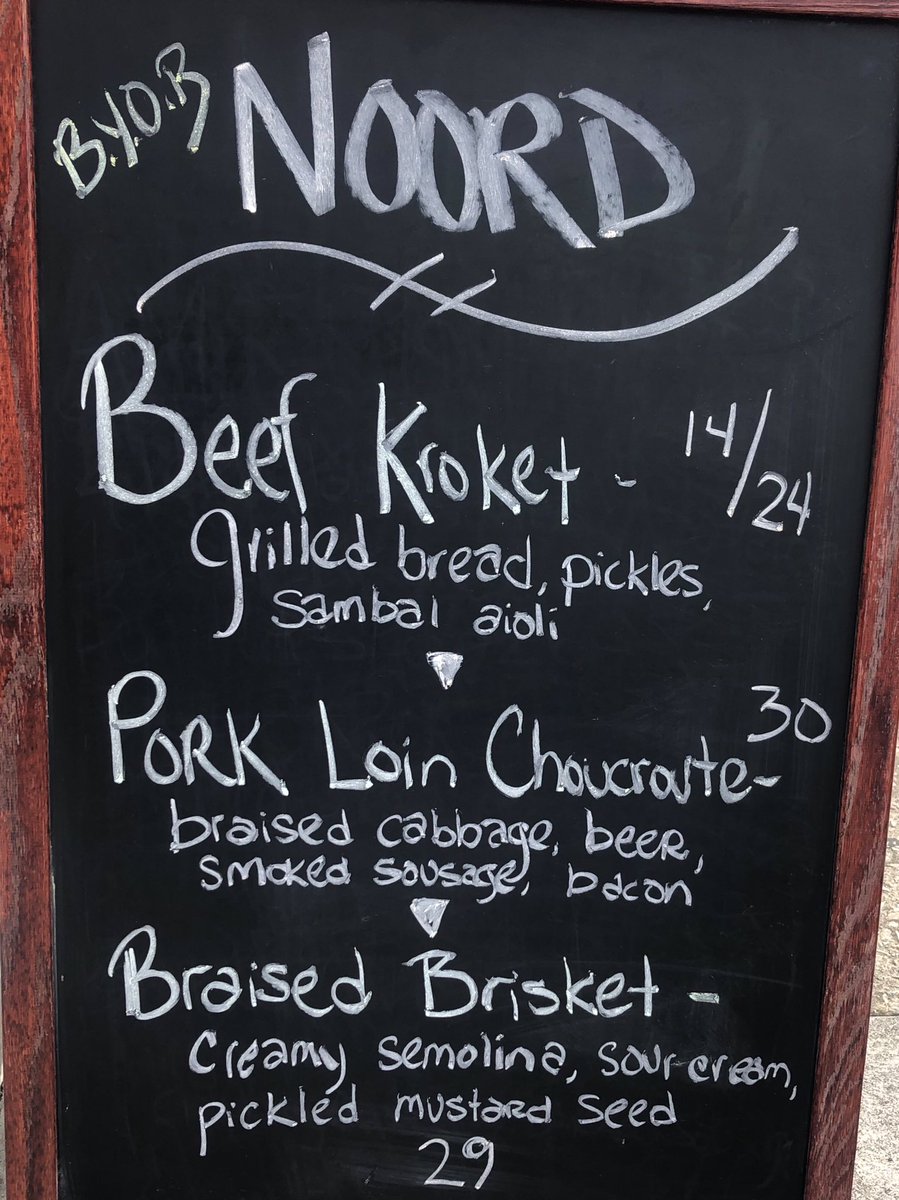 B.Y.O.B
NOORD
Beef Kroket - 14/24
grilled bread, pickles,
sambal aioli
Pork Loin Choucroute- 30
braised cabbage, beer,
smoked sausage, bacon
Braised Brisket -
creamy semolina, sour cream,
pickled mustard seed
29